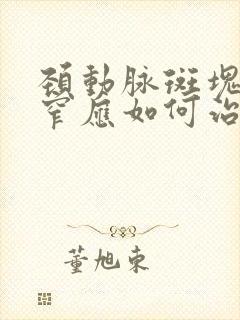 頚動脉斑塊
窄應如何治
董旭東